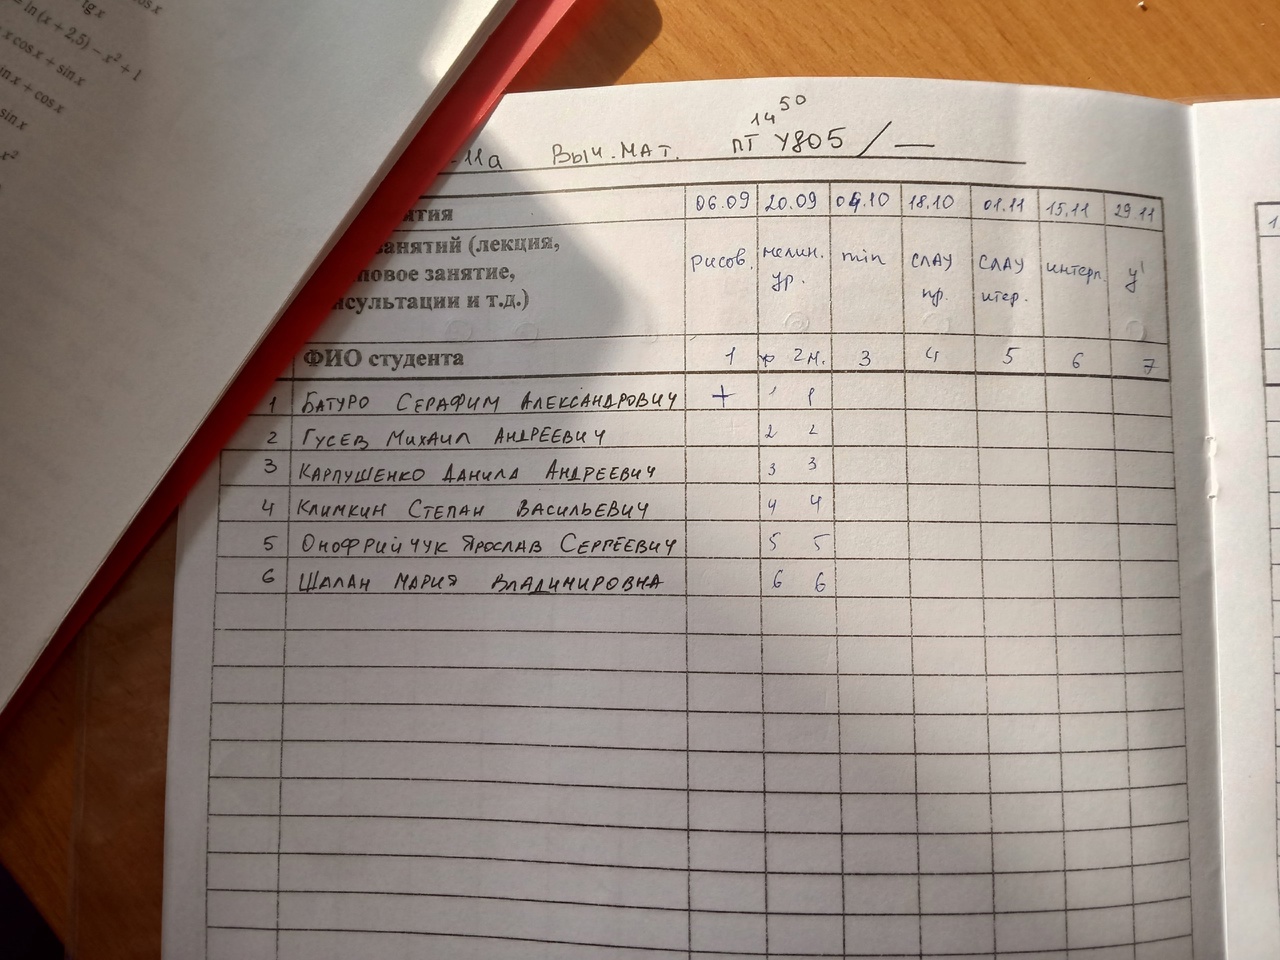 ln(x + 2,5) − x² + 1
x cos x + sin x
in x + cos x
sin x
x²
14 50
-11а Выч.мат. пт У805 / —
ятия 06.09 20.09 04.10 18.10 01.11 15.11 29.11
занятий (лекция,
повое занятие,
нсультации и т.д.)
рисов. нелин. ур. min СЛАУ пр. СЛАУ итер. интерп. y'
ФИО студента 1 р 2м. 3 4 5 6 7
1 Батуро Серафим Александрович + 1 1
2 Гусев Михаил Андреевич 2 2
3 Карпушенко Данила Андреевич 3 3
4 Климкин Степан Васильевич 4 4
5 Онофрийчук Ярослав Сергеевич 5 5
6 Шалан Мария Владимировна 6 6